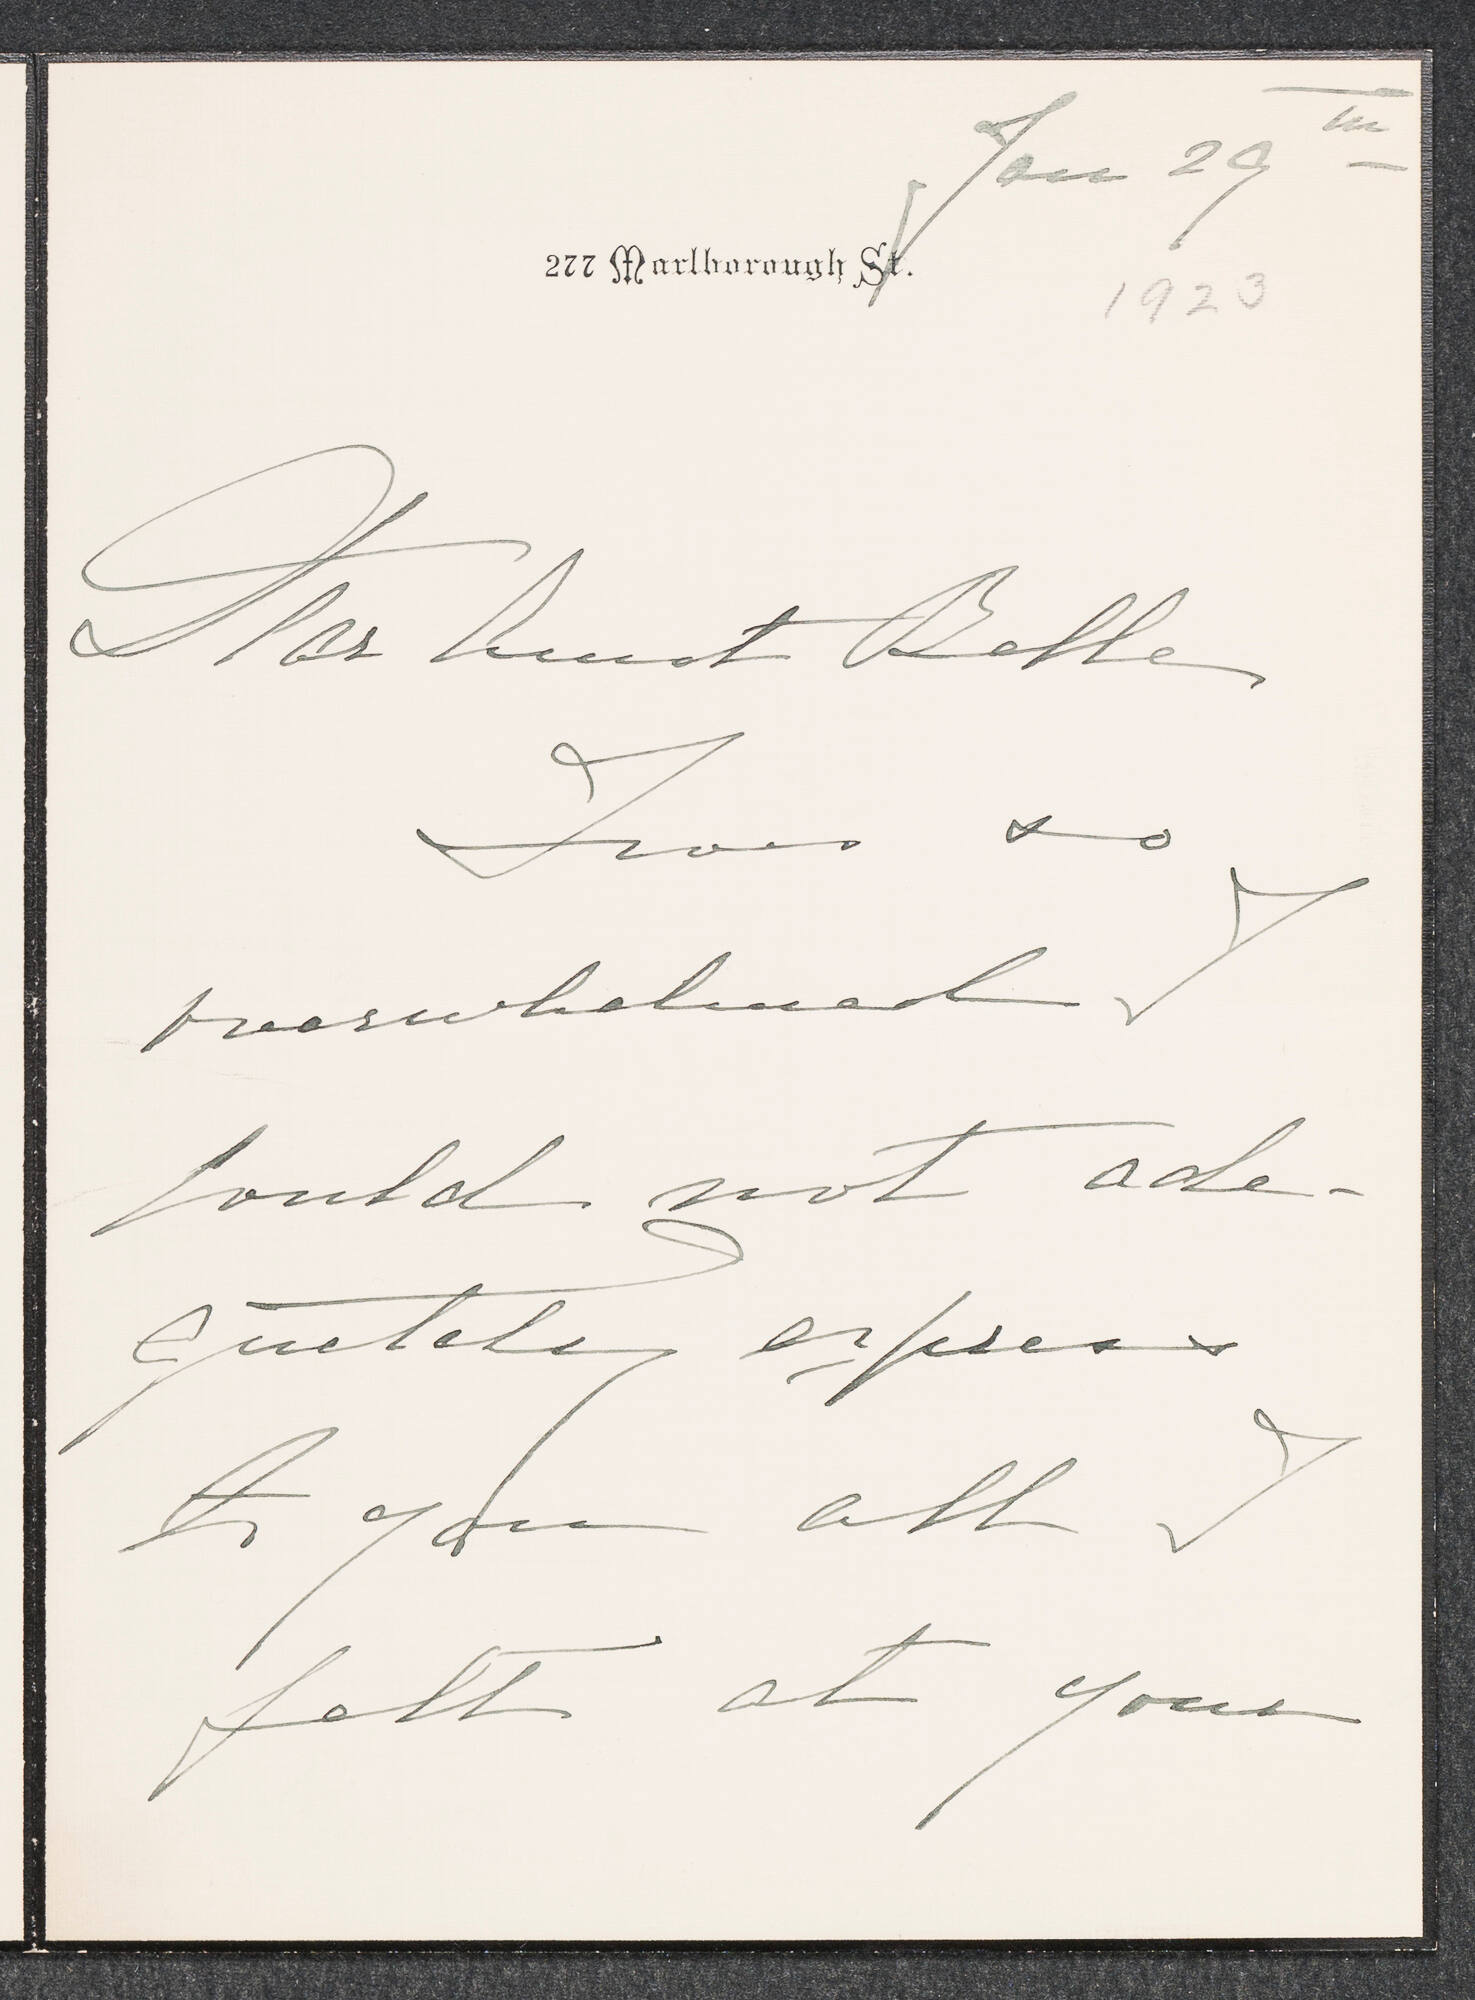 Jan 29th
277 Marlborough St.
1923
Dear Aunt Belle
I was so
overwhelmed I
could not ade-
quately express
to you all I
felt at your